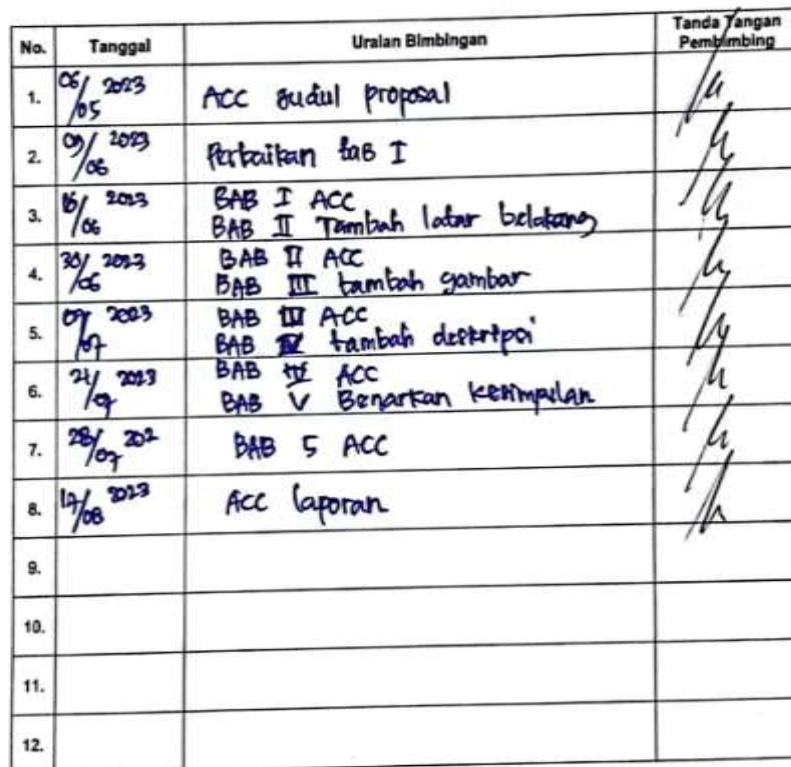 No. Tanggal Uraian Bimbingan Tanda Tangan Pembimbing
1. 06/05 2023 ACC Judul proposal
2. 09/06 2023 Perbaikan bab I
3. 16/06 2023 BAB I ACC
BAB II Tambah latar belakang
4. 30/06 2023 BAB II ACC
BAB III tambah gambar
5. 07/07 2023 BAB III ACC
BAB IV tambah deskripsi
6. 21/07 2023 BAB IV ACC
BAB V Benarkan kesimpulan
7. 28/07 202 BAB 5 ACC
8. /08 2023 ACC laporan
9.
10.
11.
12.